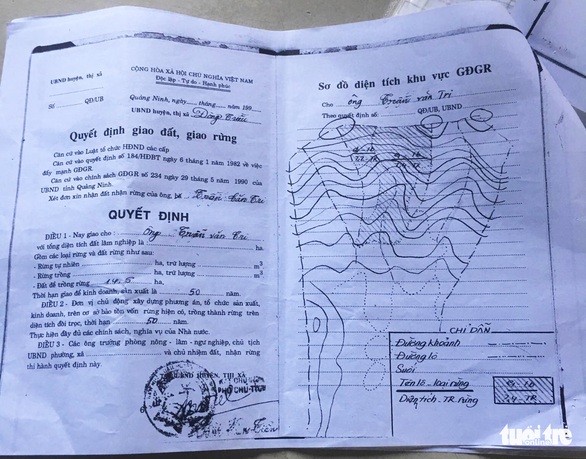 UBND huyện, thị xã
Số QĐ.UB
CỘNG HÒA XÃ HỘI CHỦ NGHĨA VIỆT NAM
Độc lập - Tự do - Hạnh phúc
Quảng Ninh, ngày..... tháng..... năm 199
UBND huyện, thị xã Đông Triều
Quyết định giao đất, giao rừng
Căn cứ vào Luật tổ chức HĐND các cấp
Căn cứ vào quyết định số 184/HĐBT ngày 6 tháng 1 năm 1982 về việc
đẩy mạnh GĐGR.
Căn cứ vào chính sách GĐGR số 234 ngày 29 tháng 5 năm 1990 của
UBND tỉnh Quảng Ninh.
Xét đơn xin nhận đất nhận rừng của ông, bà Trần Văn Tri
QUYẾT ĐỊNH
ĐIỀU 1 - Nay giao cho: ông Trần văn Tri
với tổng diện tích đất lâm nghiệp là ha.
Gồm các loại rừng và đất rừng như sau:
- Rừng tự nhiên ha, trữ lượng m3
- Rừng trồng ha, trữ lượng m3
- Đất để trồng rừng 14.5 ha
Thời hạn giao để kinh doanh sản xuất là 50 năm.
ĐIỀU 2 - Đơn vị chủ động xây dựng phương án, tổ chức sản xuất,
kinh doanh, trên cơ sở bảo tồn vốn rừng hiện có, trồng thành rừng trên
diện tích đồi trọc, thời hạn 50 năm.
Thực hiện đầy đủ các chính sách, nghĩa vụ của Nhà nước.
ĐIỀU 3 - Các ông trưởng phòng nông - lâm - ngư nghiệp, chủ tịch
UBND phường, xã và chủ nhiệm đất, nhận rừng
thi hành quyết định này.
HUYỆN, THỊ XÃ
CHỦ TỊCH
PHÓ CHỦ TỊCH
Sơ đồ diện tích khu vực GĐGR
Cho ông Trần văn Tri
Theo quyết định số: QĐ.UB, UBND
CHỈ DẪN
Đường khoảnh
Đường lô
Suối
Tên lô - loại rừng
Diện tích. TR rừng
tuổi trẻ